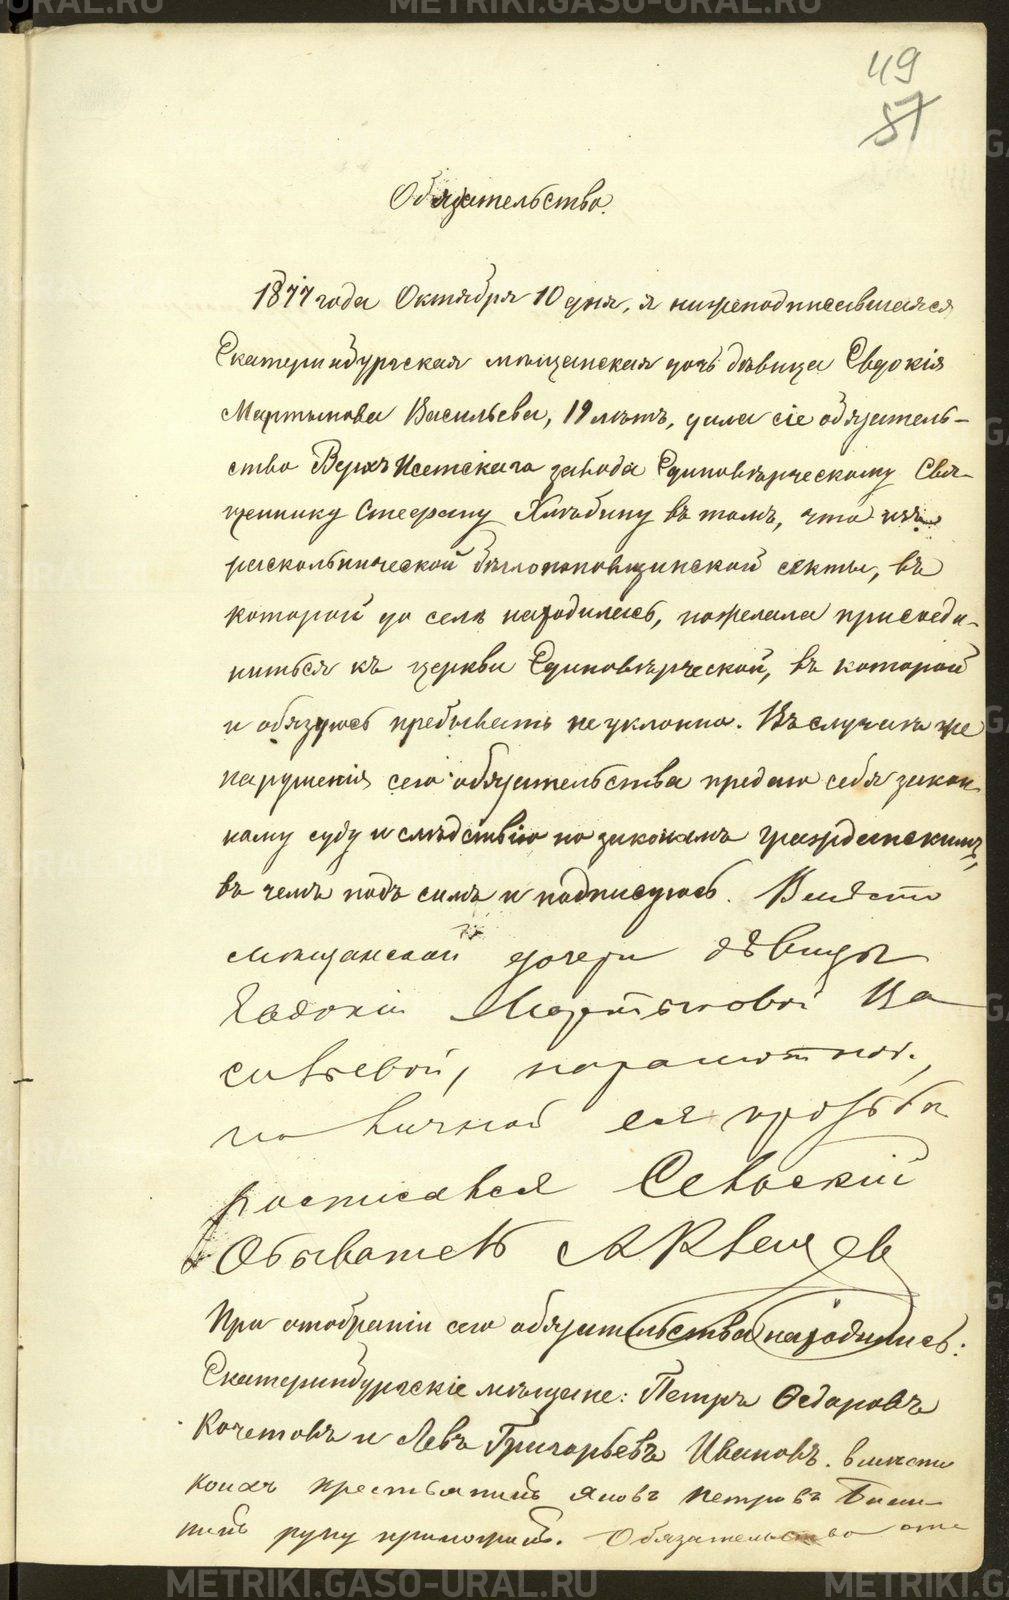 METRIKI.GASO-URAL.RU
49
87
Обязательство.
1877 года Октября 10 дня, я нижеподписавшаяся
Екатеринбургская мѣщанская дочь дѣвица Евдокія
Мартынова Васильева, 19 лѣтъ, дала сіе обязатель-
ство Верхъ Исетскаго завода Единовѣрческому Свя-
щеннику Стефану Хлѣбину въ томъ, что изъ
раскольнической бѣглопоповщинской секты, въ
которой до селѣ находилась, пожелала присоеди-
ниться къ церкви Единовѣрческой, въ которой
и обязуюсь пребывать неуклонно. Въ случаѣ же
нарушенія сего обязательства предаю себя закон-
ному суду и слѣдствію по законамъ гражданскимъ,
въ чемъ подъ симъ и подписуюсь. Вмѣсто
мѣщанской дочери дѣвицы
Евдокіи Мартыновой Ва
сильевой, неграмотной,
по личной ея просьбѣ
росписался Сельскій
Обыватель
При отобраніи сего обязательства находились:
Екатеринбургскіе мѣщане: Петръ Ѳедоровъ
Кочетовъ и Левъ Григорьевъ Ивановъ. вмѣсто
коихъ крестьянинъ Яковъ Петровъ
руку приложилъ. Обязательство ото
METRIKI.GASO-URAL.RU